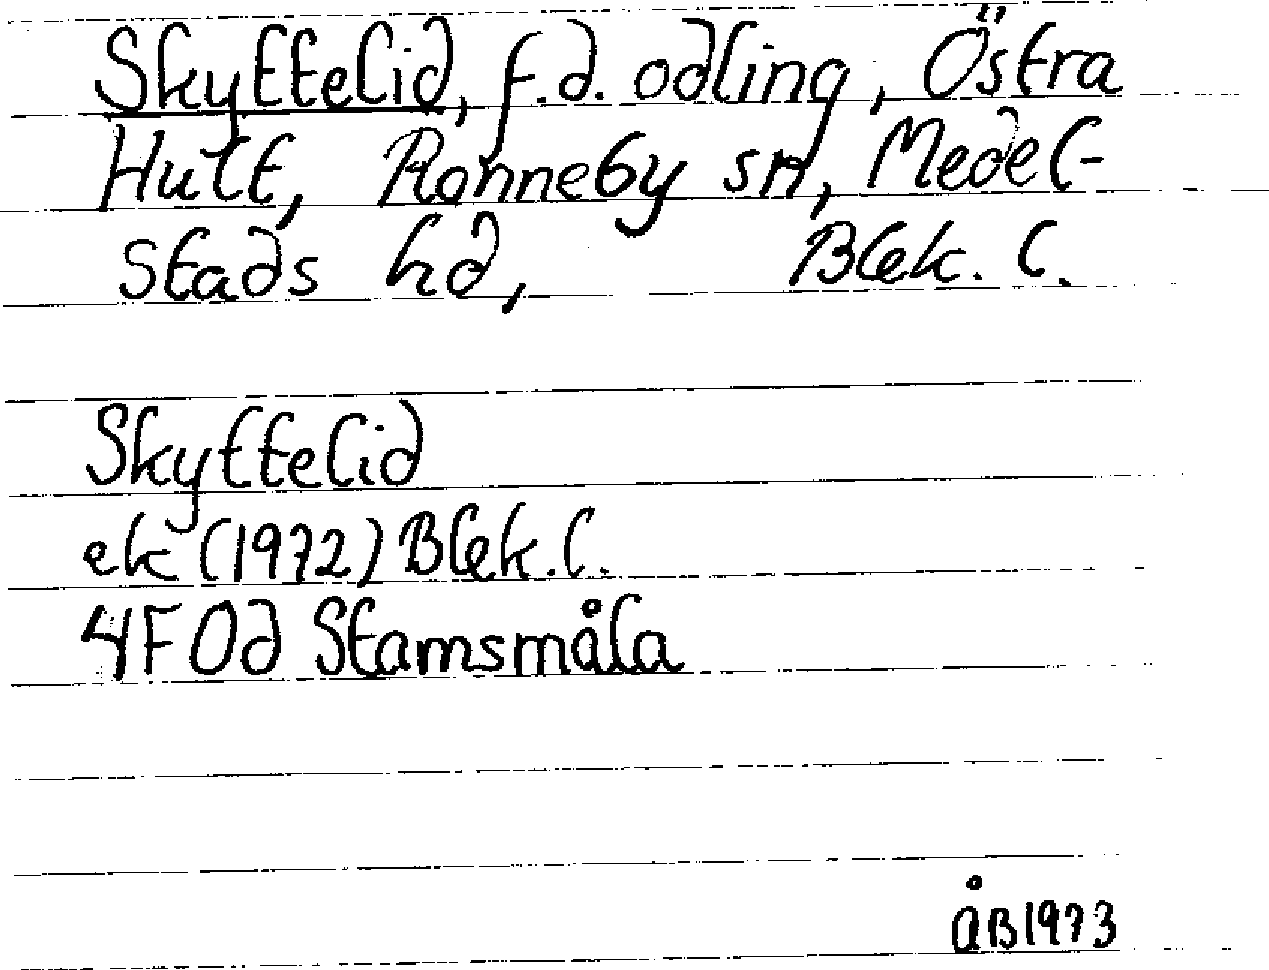 Skyttelid, f.d. odling, Östra
Hult, Ronneby sn, Medel-
stads hd, Blek. l.
Skyttelid
ek (1972) Blek. l.
4F 0d Stamsmåla
ÅB 1973